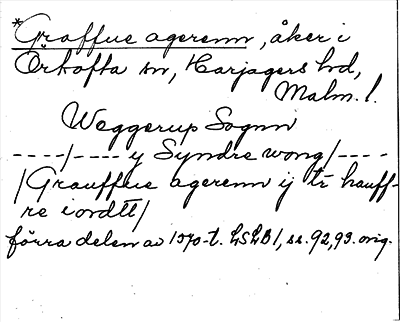 *Graffue agerenn, åker i
Örtofta sn, Harjagers hd,
Malm. l.
Weggerup Sognn
----/---- y Syndre wong/----
/Grauffue agerenn ij tr hauff-
re iordtt/
förra delen av 1570-t. LSLB1, ss. 92, 93. orig.